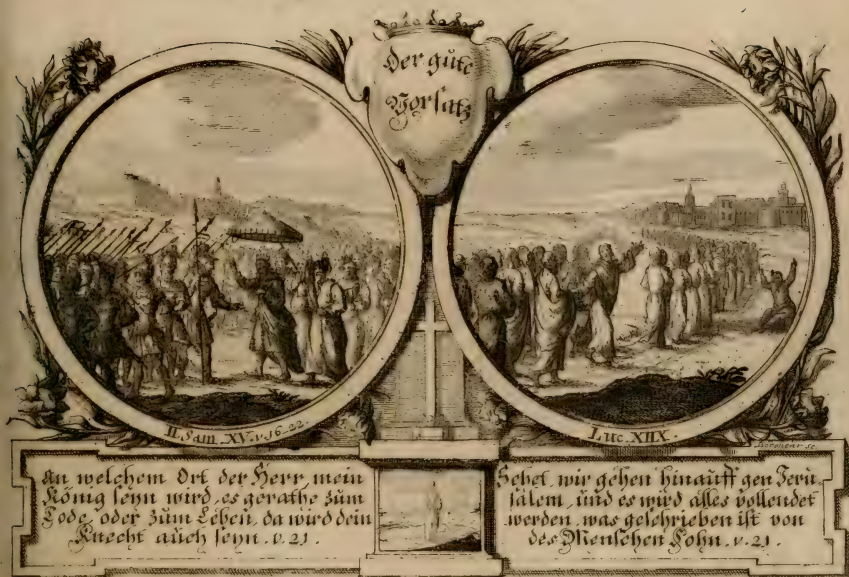 Der gute
Vorsatz
II. Sam. XV. v. 16-22.
Luc. XIIX.
An welchem Ort der Herr, mein
König seyn wird, es gerathe zum
Tode, oder zum Leben, da wird dein
Knecht auch seyn. v. 21.
Sehet, wir gehen hinauff gen Jeru
salem, und es wird alles vollendet
werden, was geschrieben ist von
des Menschen Sohn. v. 21.